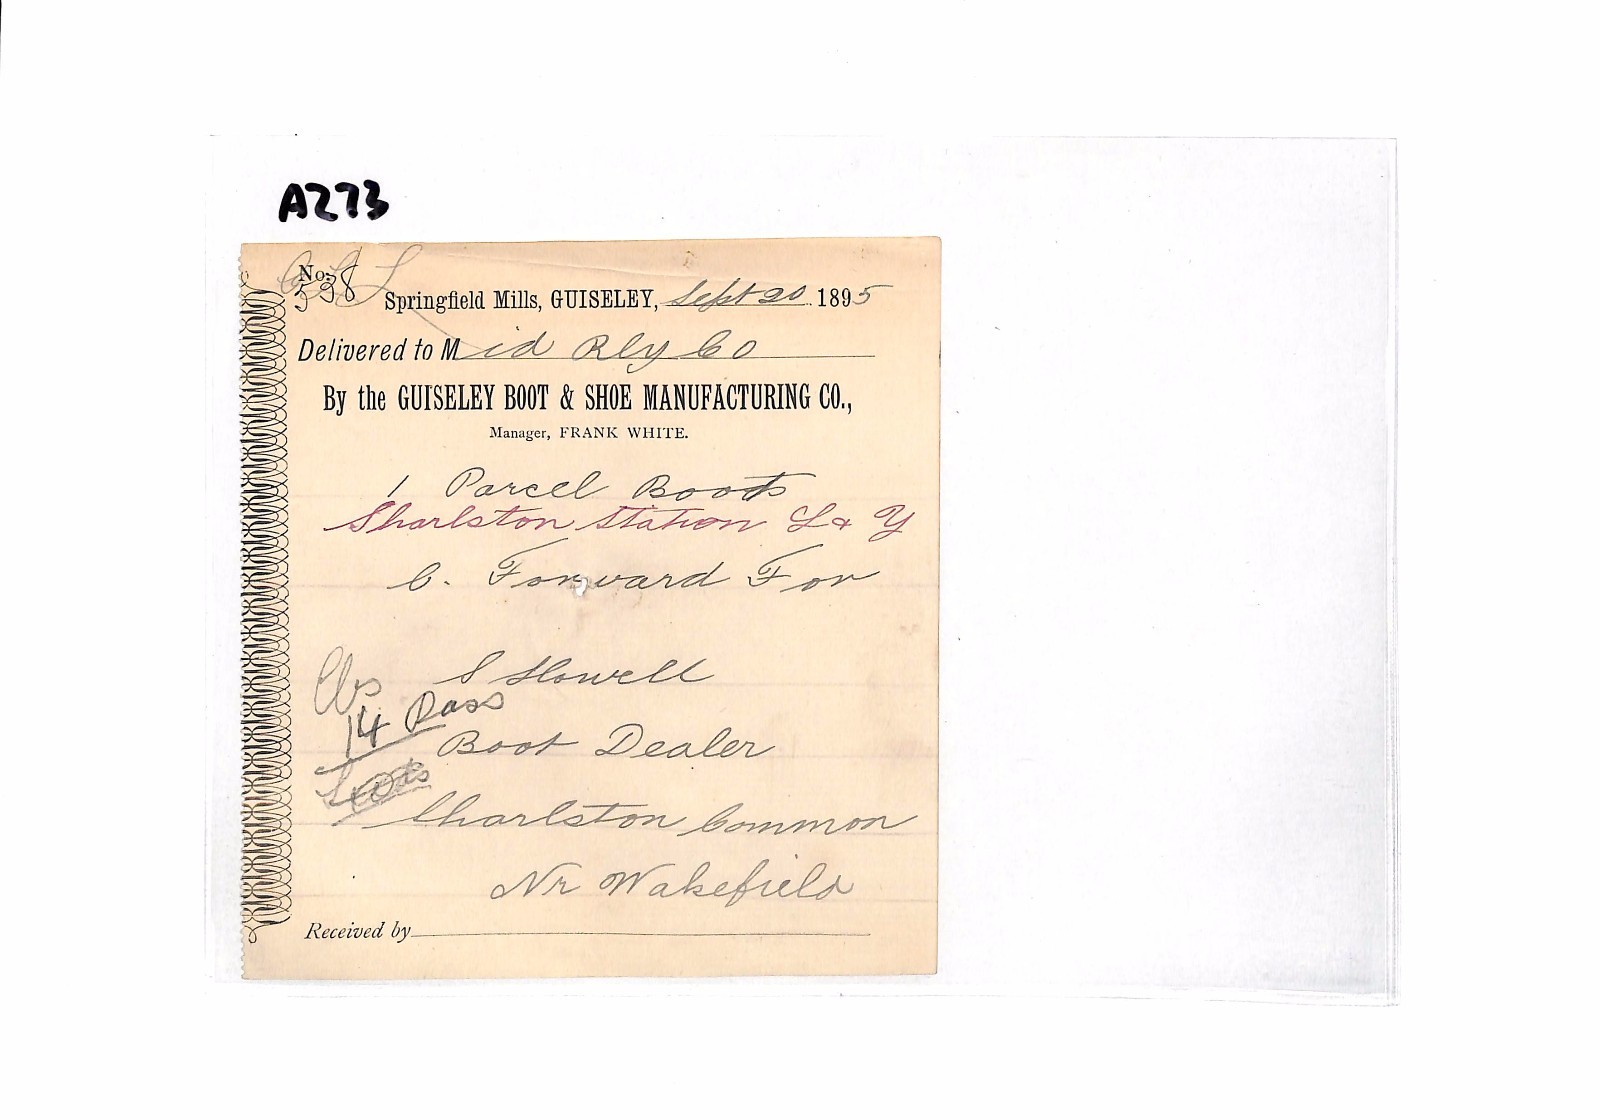 A273
No.
538
Springfield Mills, GUISELEY, Sept 20 1895
Delivered to Mid Rly Co
By the GUISELEY BOOT & SHOE MANUFACTURING CO.,
Manager, FRANK WHITE.
1 Parcel Boots
Sharlston Station L & Y
C. Forward For
S Howell
14 Pass
Boot Dealer
Sharlston Common
Nr Wakefield
Received by